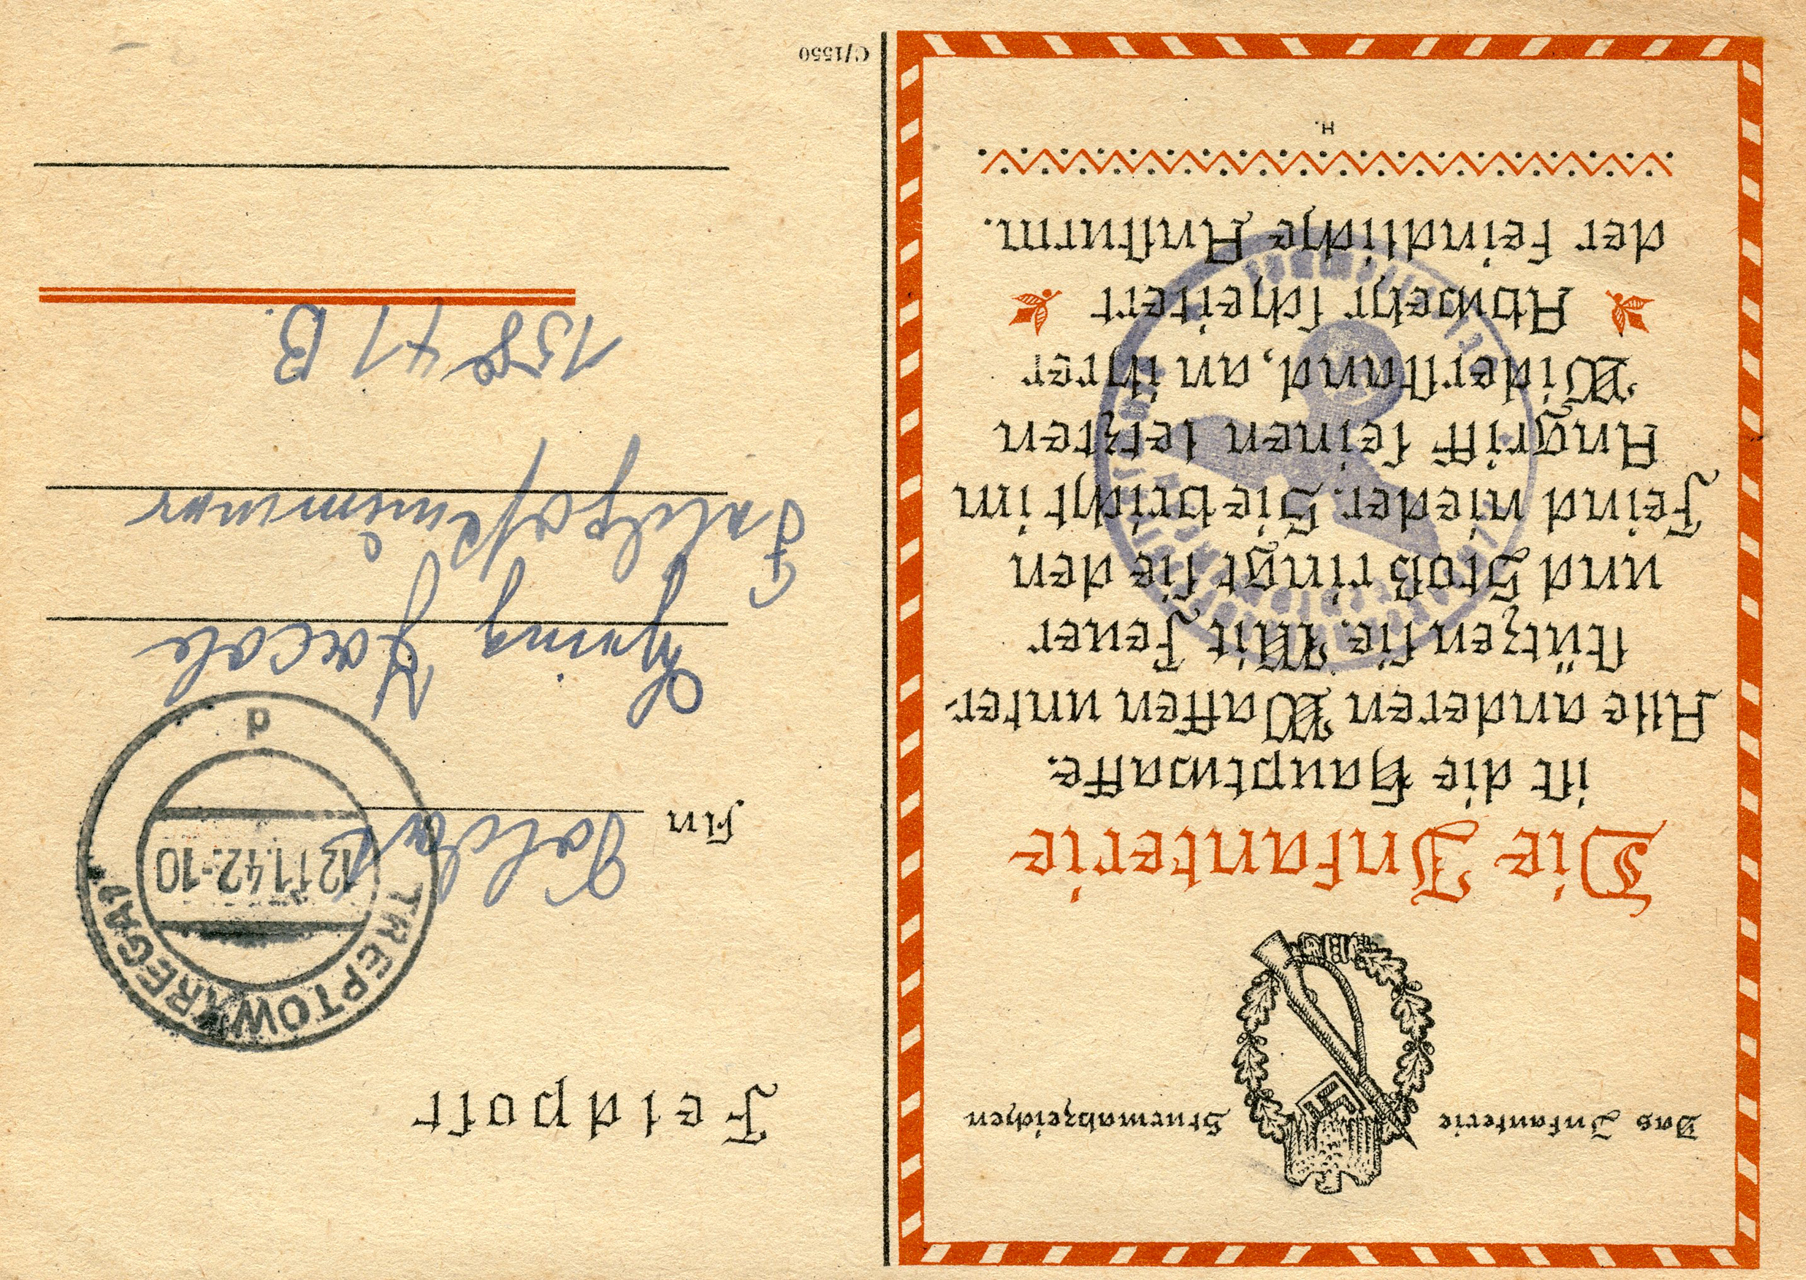 Das Infanterie Sturmabzeichen
Die Infanterie
ist die Hauptwaffe.
Alle anderen Waffen unter-
stützen sie. Mit Feuer
und Stoß ringt sie den
Feind nieder. Sie bricht im
Angriff seinen letzten
Widerstand, an ihrer
Abwehr scheitert
der feindliche Ansturm.
H.
Feldpost
TREPTOW (REGA)
12.11.42.-10
d
An Soldat
Jacob
Feldpostnummer
15841 B.
C/1550